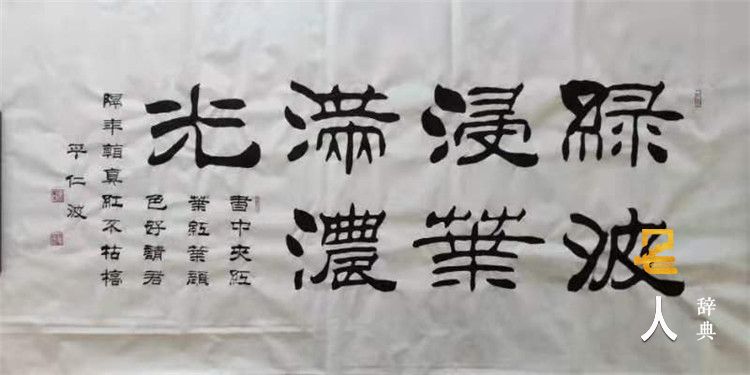 綠波
浸葉
滿濃
光
書中夾紅
葉紅葉顏
色好請君
隔年看真紅不枯槁
平仁波
人
辞典